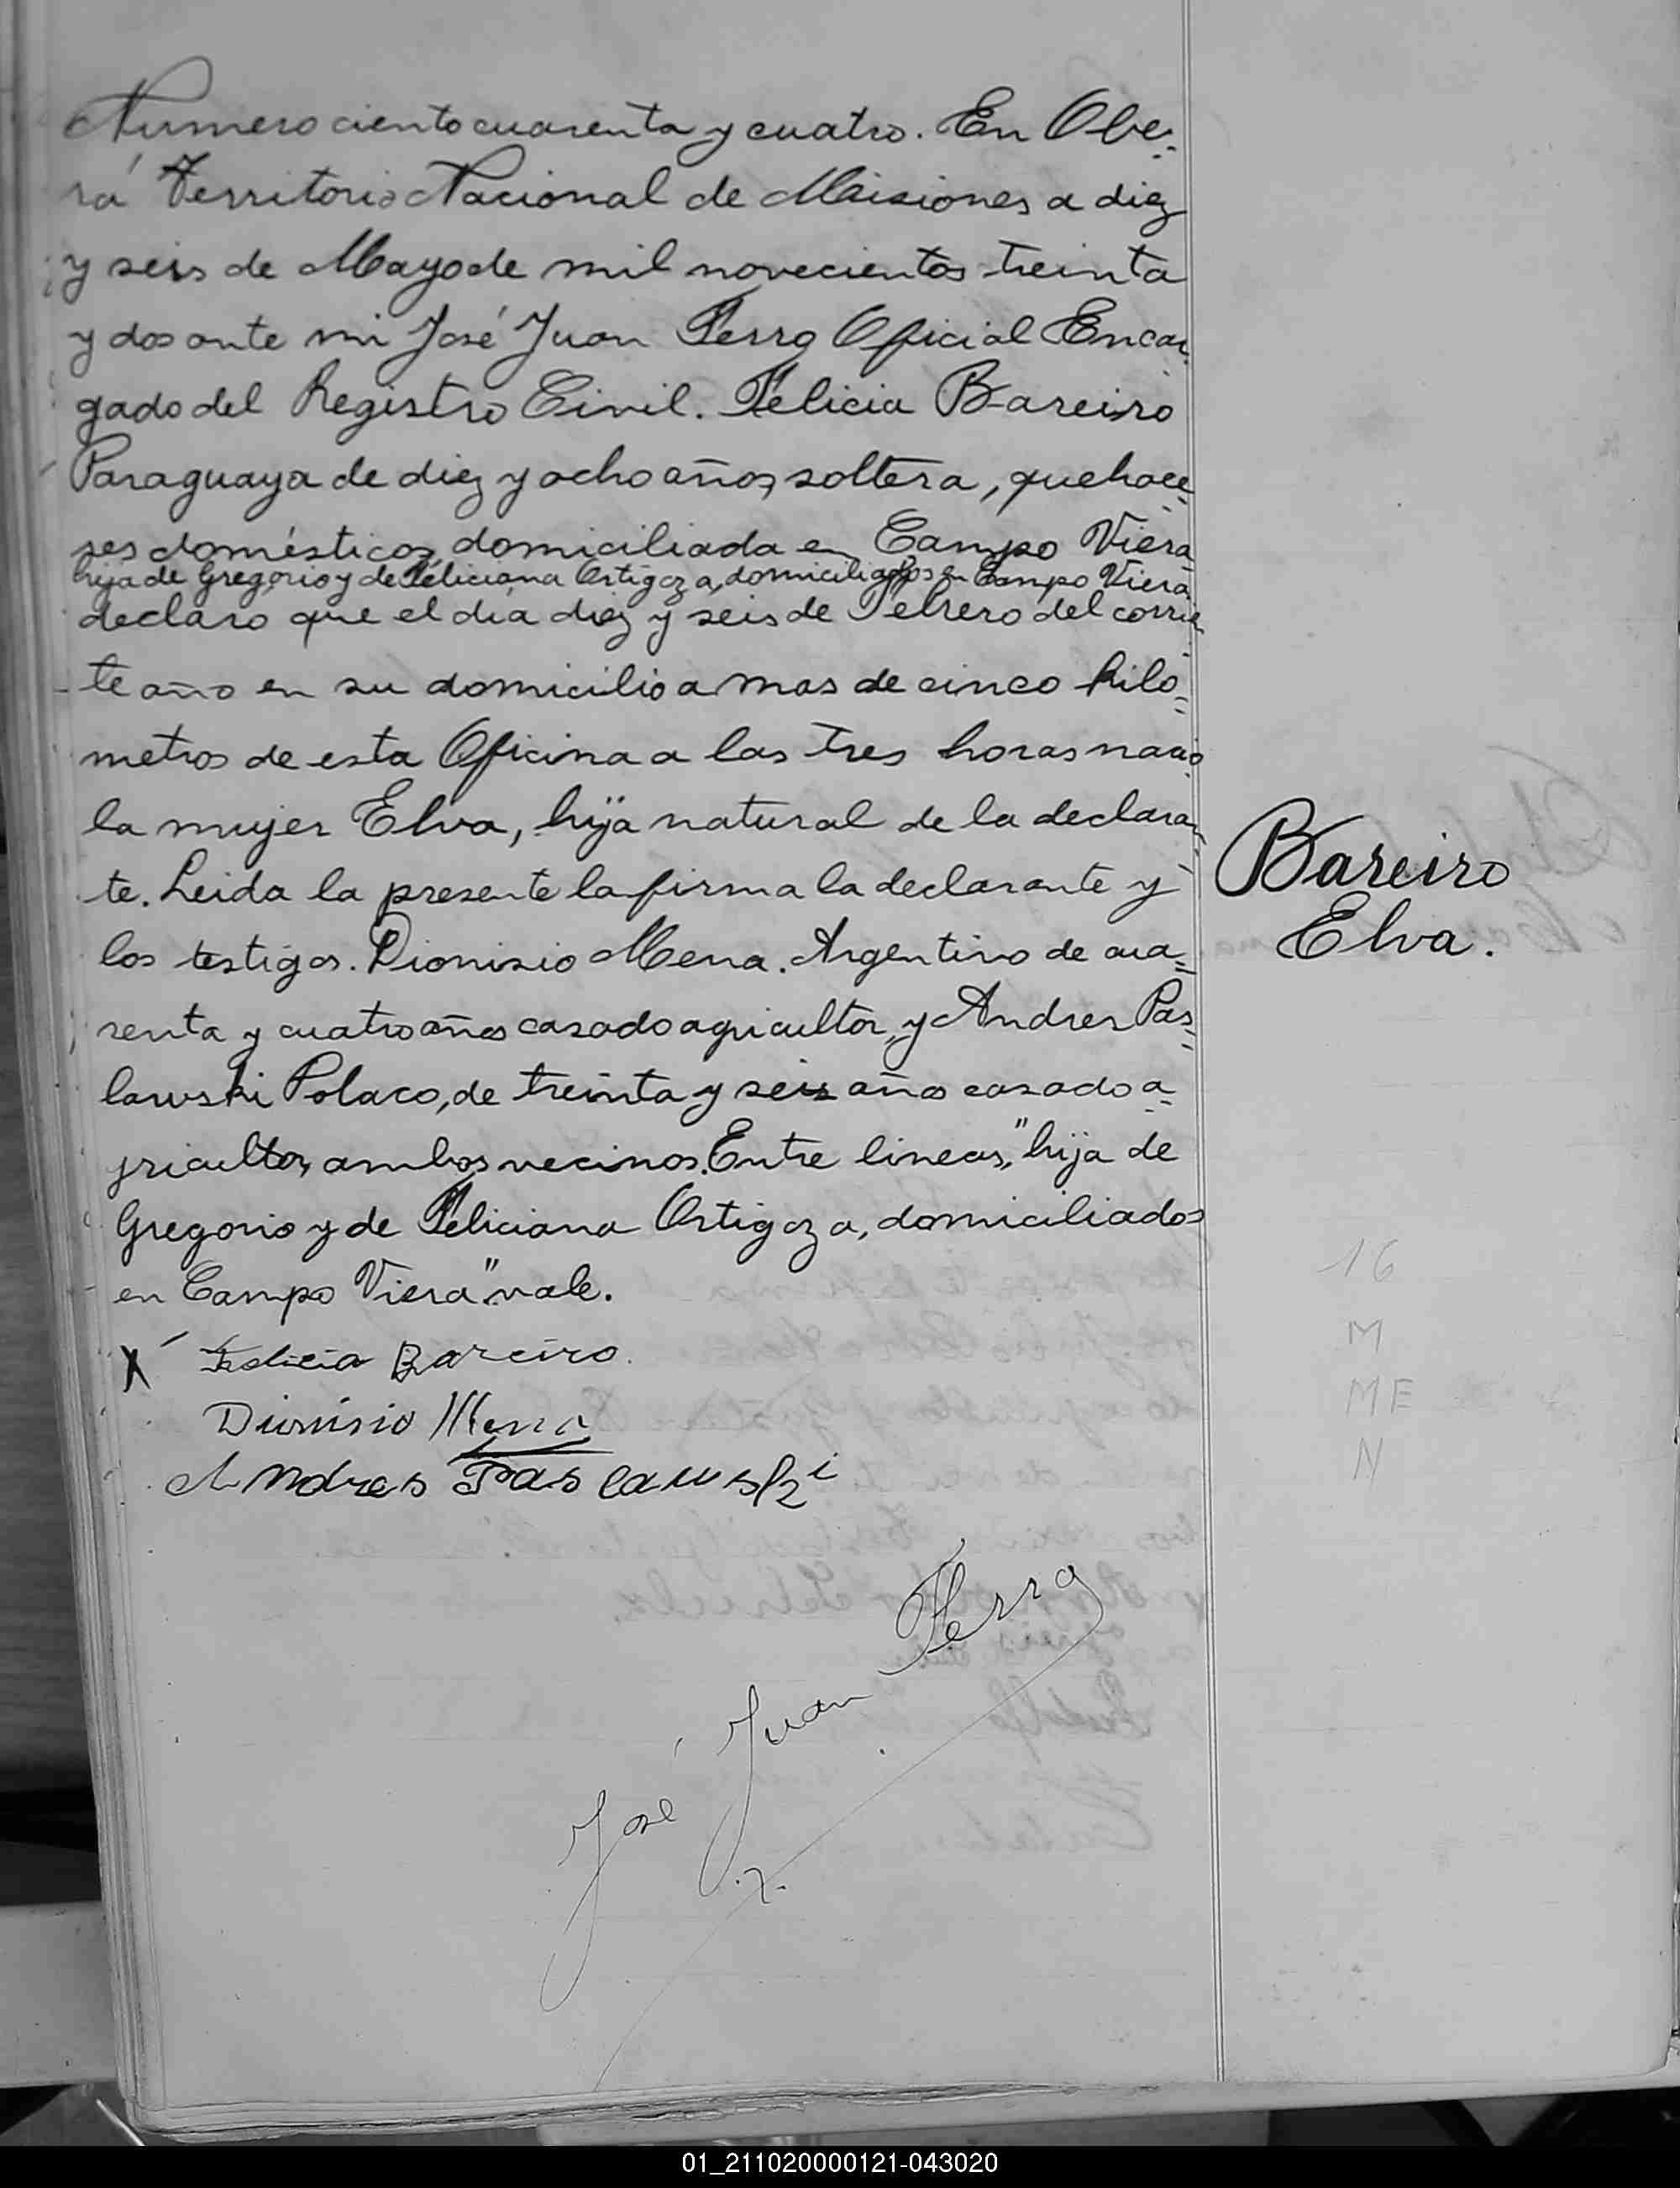 Numero ciento cuarenta y cuatro. En Obe=
rá Territorio Nacional de Misiones a diez
y seis de Mayo de mil novecientos treinta
y dos ante mi José Juan Ferro Oficial Encar
gado del Registro Civil. Felicia Bareiro
Paraguaya de diez y ocho años, soltera, quehace=
res domésticos, domiciliada en Campo Viera
hija de Gregorio y de Feliciana Ortigoza, domiciliados en Campo Viera
declaro que el dia diez y seis de Febrero del corrien
te año en su domicilio a mas de cinco kilo=
metros de esta Oficina a las tres horas nacio
la mujer Elva, hija natural de la declaran
te. Leida la presente la firma la declarante y
los testigos. Dionisio Mena. Argentino de cua=
renta y cuatro años casado agricultor, y Andres Pas=
lawski Polaco, de treinta y seis años casado a=
gricultor, ambos vecinos. Entre lineas, "hija de
Gregorio y de Feliciana Ortigoza, domiciliados
en Campo Viera" vale.
X Felicia Bareiro.
Dionisio Mena
Andres Paslawski
José Juan Ferro
Bareiro
Elva.
16
M
ME
N
01_211020000121-043020